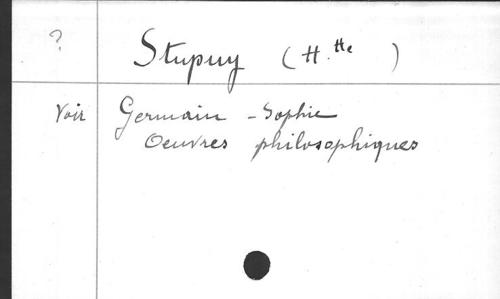 ?
Stupuy (H.tte)
Voir Germain - Sophie
Oeuvres philosophiques